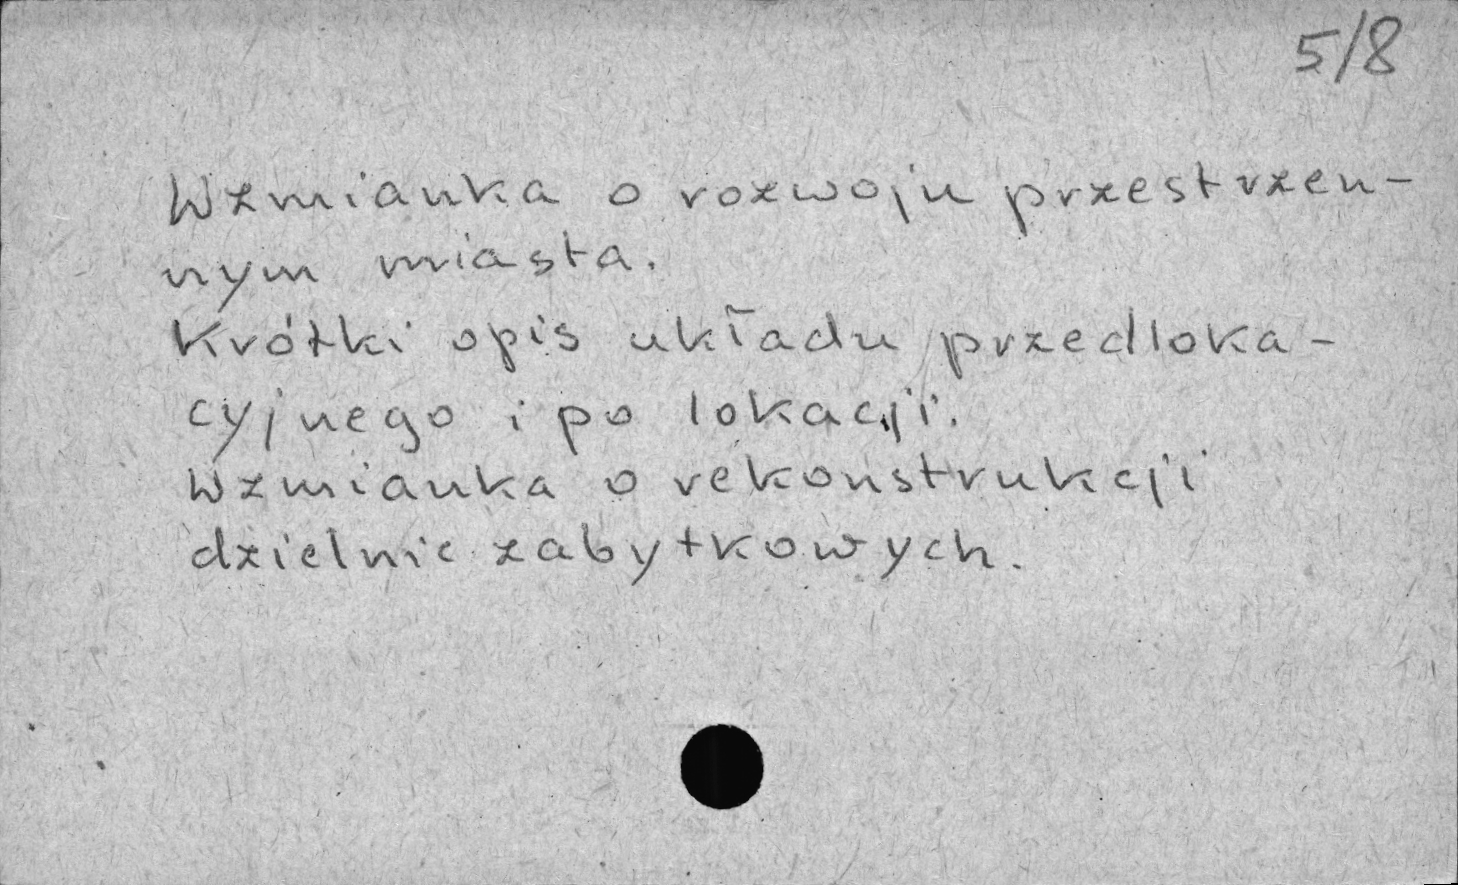 5/8
Wzmianka o rozwoju przestrzen-
nym miasta.
Krótki opis układu przedloka-
cyjnego i po lokacji.
Wzmianka o rekonstrukcji
dzielnic zabytkowych.